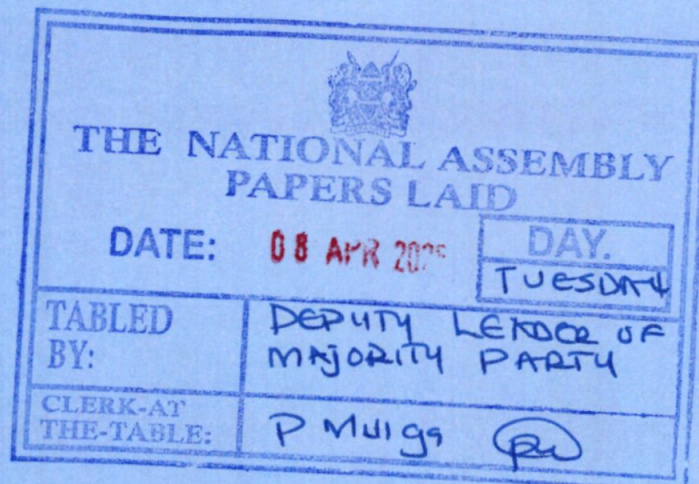 THE NATIONAL ASSEMBLY
PAPERS LAID
DATE: 08 APR 2025 DAY.
TUESDAY
TABLED BY: DEPUTY LEADER OF
MAJORITY PARTY
CLERK-AT
THE-TABLE: